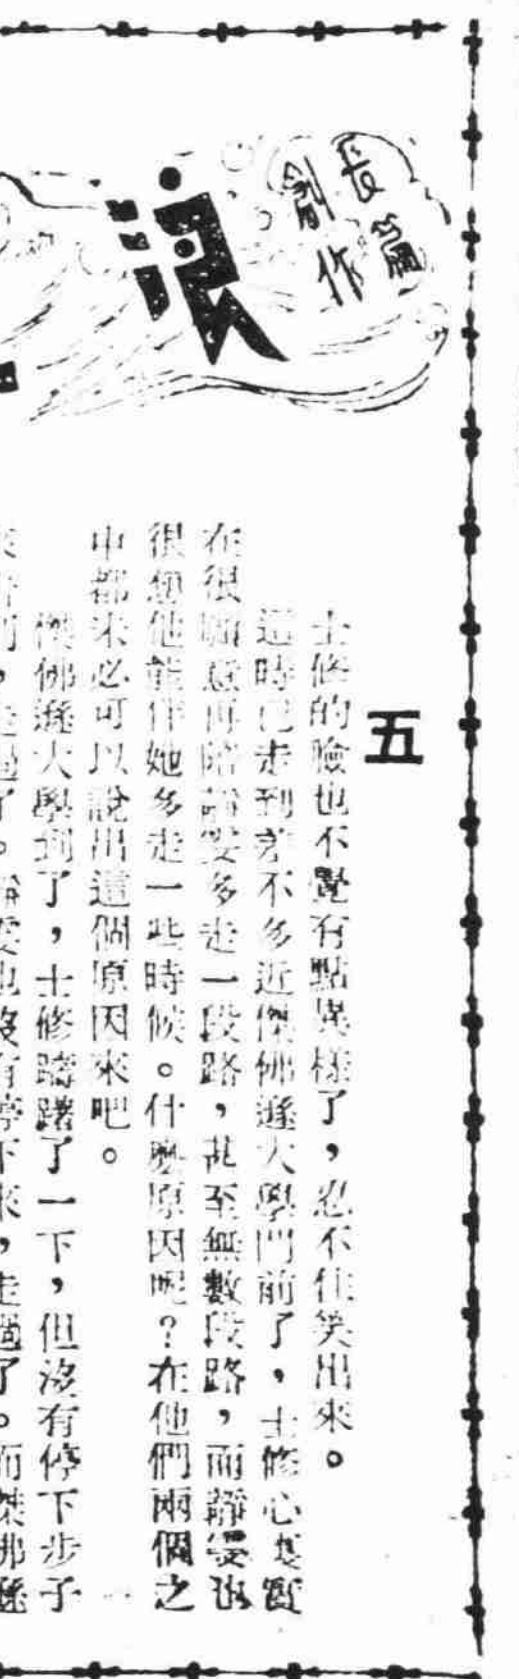 長篇
創作
浪
五
士修的臉也不覺有點異樣了，忍不住笑出來。
這時已走到差不多近傑佛遜大學門前了，士修心裏實
在很願意再陪靜雯多走一段路，甚至無數段路，而靜雯也
很想他能伴她多走一些時候。什麼原因呢？在他們兩個之
中都未必可以說出這個原因來吧。
傑佛遜大學到了，士修躊躇了一下，但沒有停下步子
走過了。靜雯也沒有停下來，走過了。而傑佛遜